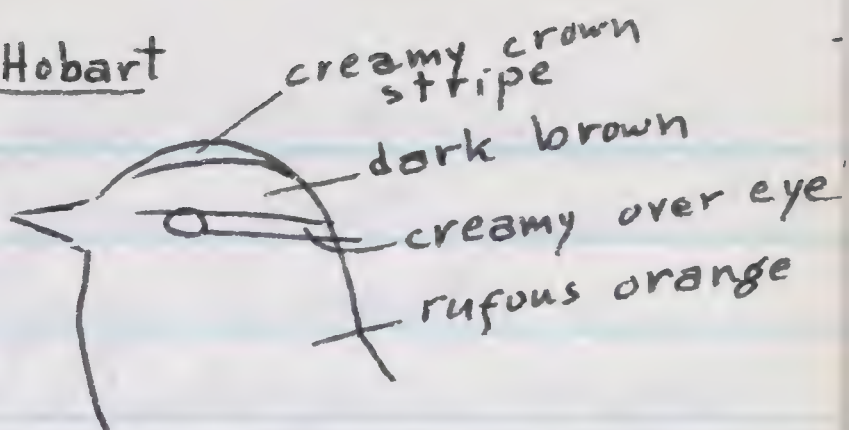 Hobart
creamy crown
stripe
dark brown
creamy over eye
rufous orange